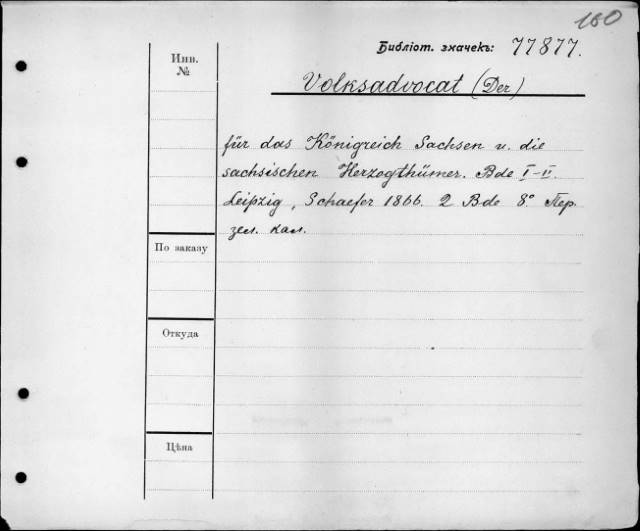 160
Библіот. значекъ: 77877.
Инв.
№
Volksadvocat (Der)
für das Königreich Sachsen u. die
sachsischen Herzogthümer. Bde I-II.
Leipzig, Schaefer 1866. 2 Bde 8° Пер.
зел. кал.
По заказу
Откуда
Цѣна